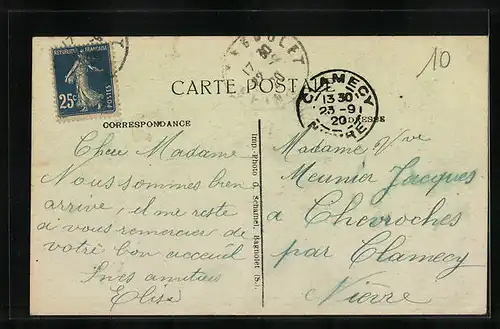 10
REPUBLIQUE FRANÇAISE
25c
POSTES
CARTE POSTALE
CLAMECY
13 30
23 - 9
20
NIEVRE
CORRESPONDANCE
ADRESSE
Chère Madame
Nous sommes bien
arrivé, il me reste
à vous remercier de
votre bon acceuil
amitiés
Elise
Imp.-Photo d. Schumer, Bagnolet (S.).
Madame Vve
Meunier Jacques
a Chevroches
par Clamecy
Nièvre